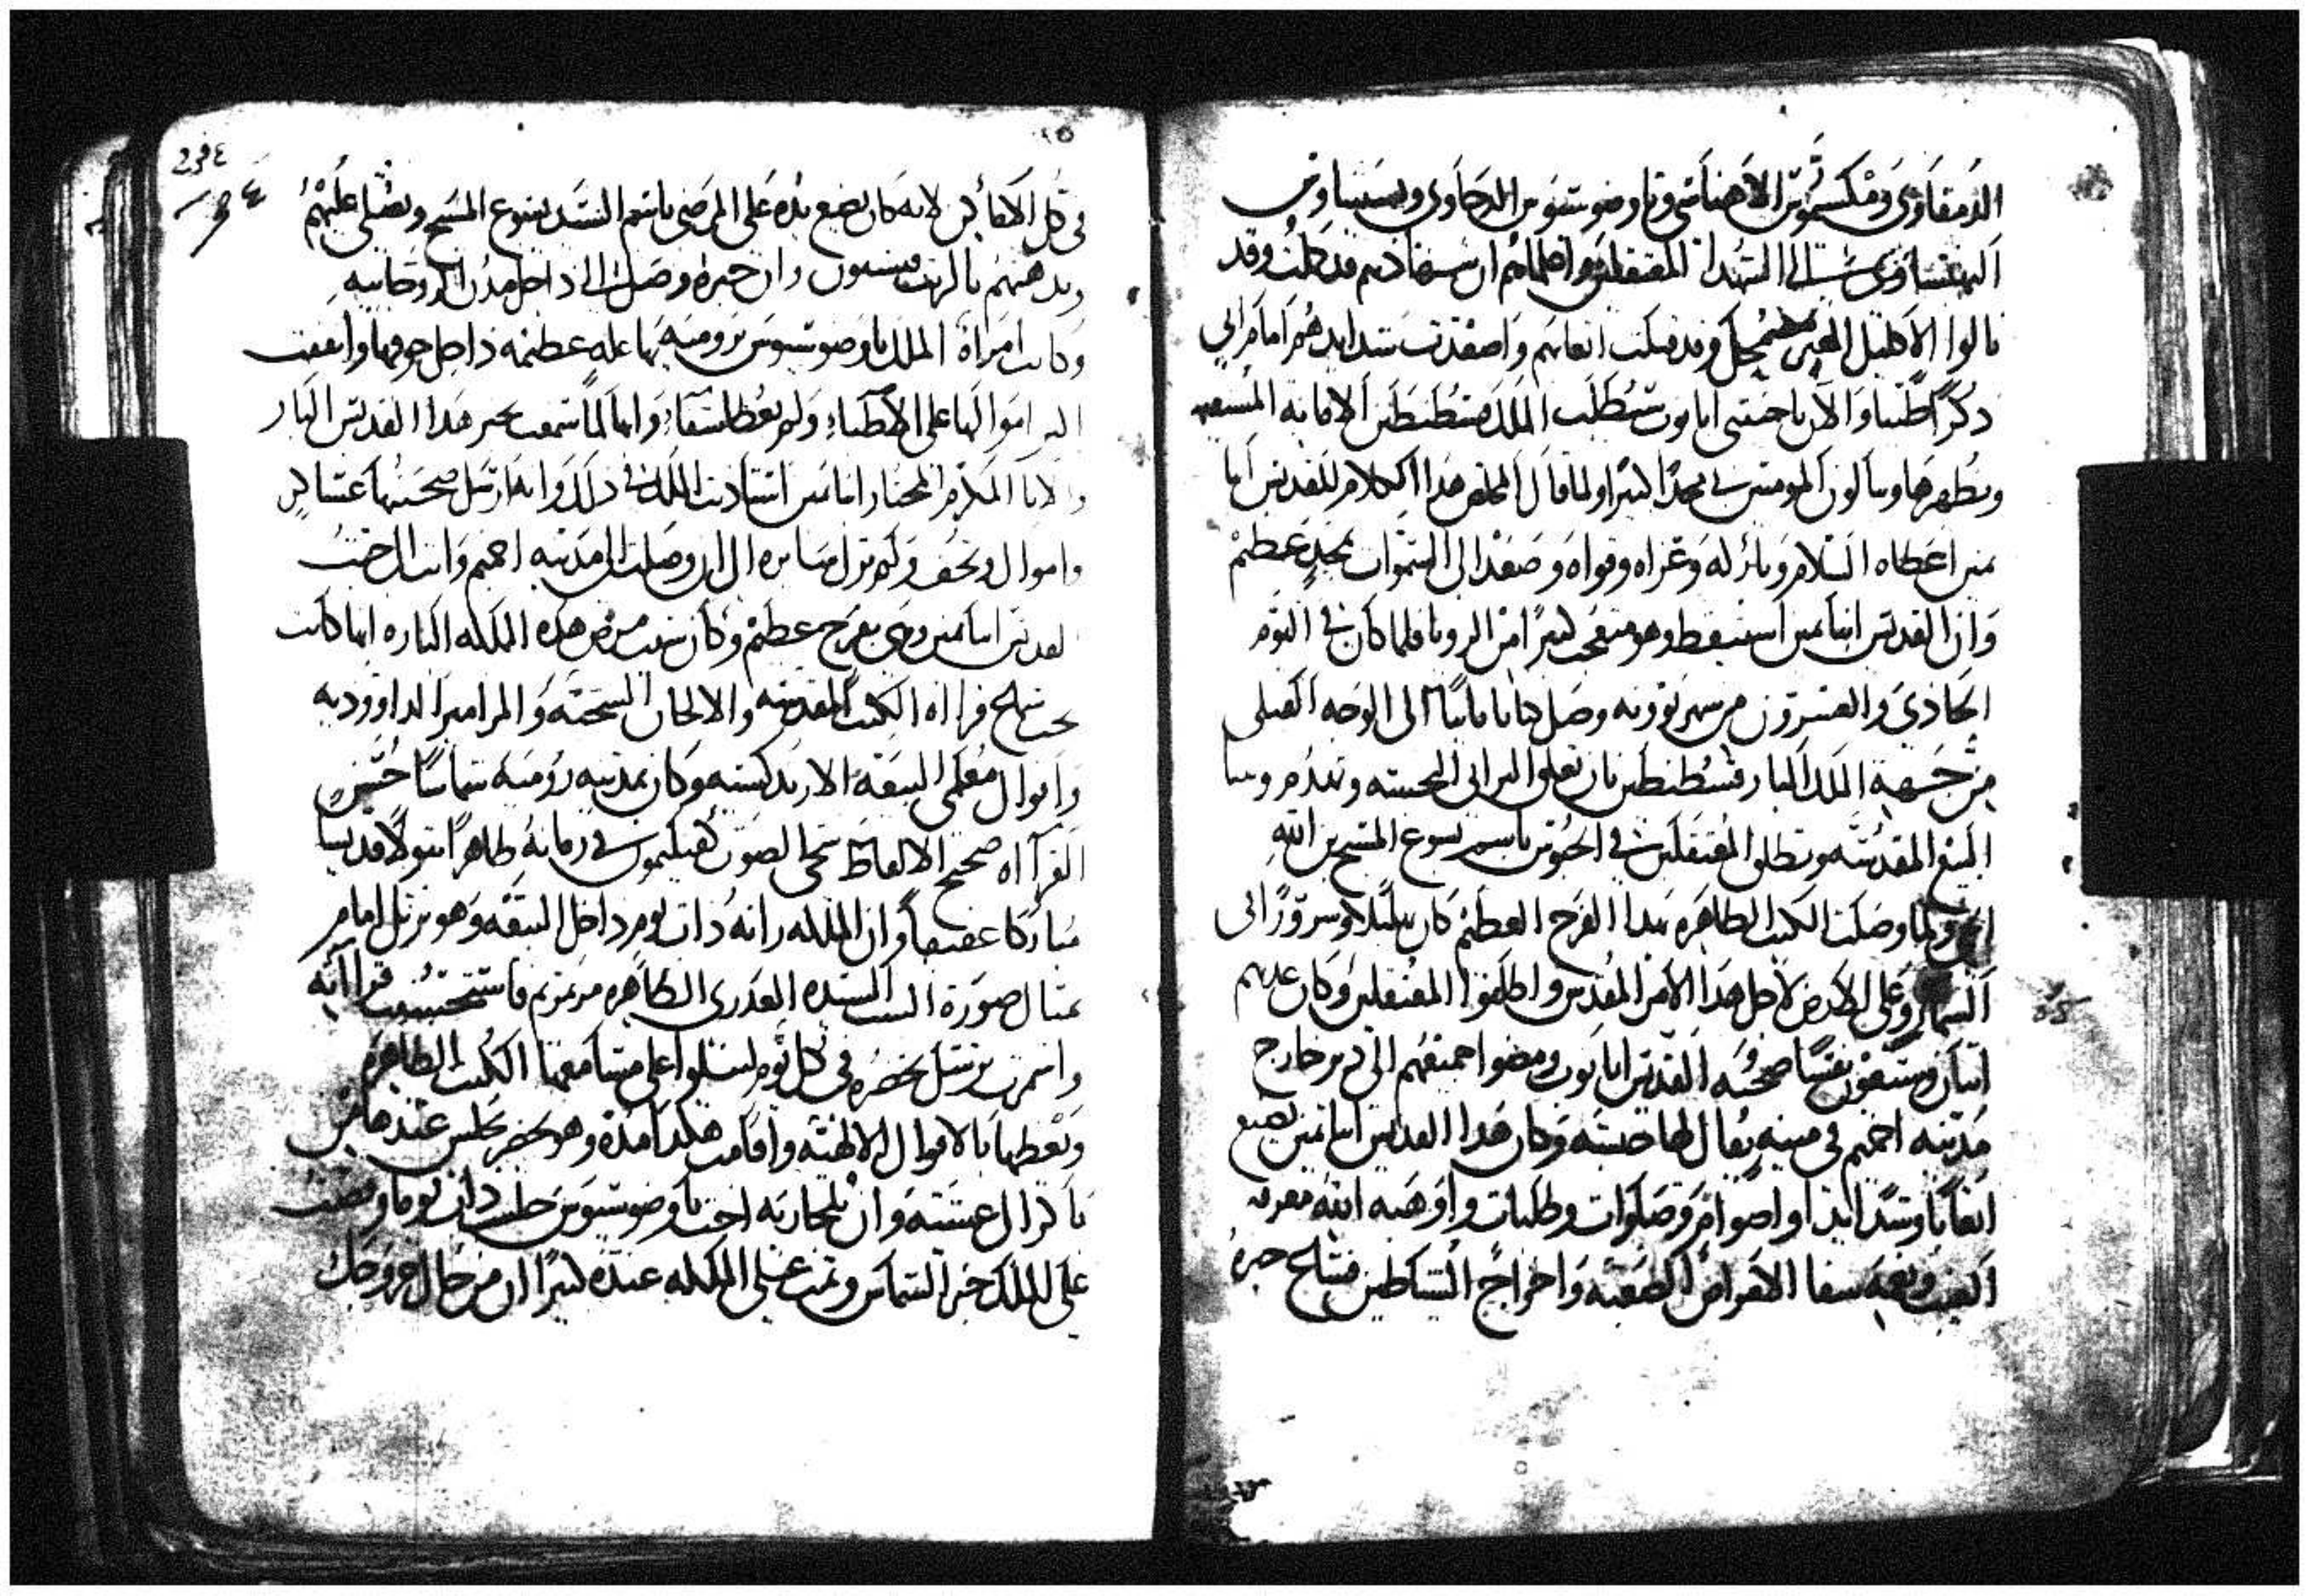 الدمقاوى ومكسيموس الاهناسى وتاوضوسيوس الدجاوى وبسيناوس
البهنساوى الى الشهدا المعتقلين واعلمهم ان شهادتهم قد كملت وقد
نالوا الاكليل الغير مضمحل وقد قبلت اتعابهم واصعدت شدايدهم امام الى
ذكرا طيبا والان يا حبيبى ابا نوب ستطلب الملك قسطنطين الاقامه البيعه
ويطهرها وينالون المومنين مجدا كبيرا ولما قال المخلص هذا الكلام للقديس ابا
مين اعطاه السلام وبارك له وعزاه وقواه وصعد الى السموات بمجد عظيم
وان القديس انبا مين استيقظ وهو متعجب كثيرا من الرويا فلما كان فى اليوم
الحادى والعشرون من شهر بوونه وصل كتابا ثانيا الى الوجه القبلى
من جهة الملك البار قسطنطين بان تغلق البرابى النجسه وتهدم وبنا
البيع المقدسه ويطلق المعتقلين فى الحبوس باسم يسوع المسيح بن الله
الحى ولما وصلت الكتب الطاهره بهذا الفرح العظيم كان تهليلا وسرورا فى
السما وعلى الارض لاجل هذا الامر المقدس واطلقوا المعتقلين وكان عدتهم
اتنان وستعون نفسا صحبة القديس ابا نوب ومضوا جميعهم الى دير خارج
مدينه اخميم فى مينه يقال لها حبسه وكان هذا القديس انبا مين يصنع
اتعابا وشدايدا واصوام وصلوات وطلبات واوهبه الله معرفه
الغيب ونعمة شفا الامراض الصعبه واخراج الشياطين فشاع خبره
فى كل الاماكن لانه كان يضع يده على المرضى باسم السيد يسوع المسيح ويصلى عليهم
ويدهنهم بالزيت فيشفون وان خبره وصل الى داخل مدن الرومانيه
وكانت امراة الملك تاوضوسيوس برومية بها عله عظيمه داخل جوفها وانفقت
اموالها على الاطباء ولم تعط شفاء وانها لما سمعت بخبر هذا القديس البار
والانا المكرم المختار انبا مين استادنت الملك فى ذلك وانه ارسل صحبتها عساكر
واموال وتحف ولم تزل سايره الى ان وصلت الى مدينه اخميم واتت الى حيث
القديس انبا مين وهى بفرح عظيم وكان سبب مرض هذه الملكه الباره انها كانت
تحب تسمع قراءه الكتب المقدسه والالحان الشجيه والمزامير الداووديه
واقوال معلمى البيعه الارتدكسيه وكان بمدينه روميه شماسا حسن
القراءه صحيح الالفاظ شجى الصوت فى زمانه طاهرا بتولا قديسا
مباركا عفيفا وان الملكه راته ذات يوم داخل البيعه وهو يرتل امام
تمثال صورة الست السيده العدرى الطاهره مرتمريم فاستحسنت قراءته
وامرت يحضره فى كل يوم ليتلوا على مسامعها الكتب الطاهره
ويعظها بالاقوال الالهيه واقامت هكذا مده وهو يحضر يجلس عندها من
باكر الى عشيه وان اخت تاوضوسيوس جلست ذات يوما وصفت
على الملك خبر الشماس ونمت على الملكه عنده كثيرا ان من حال خروجك